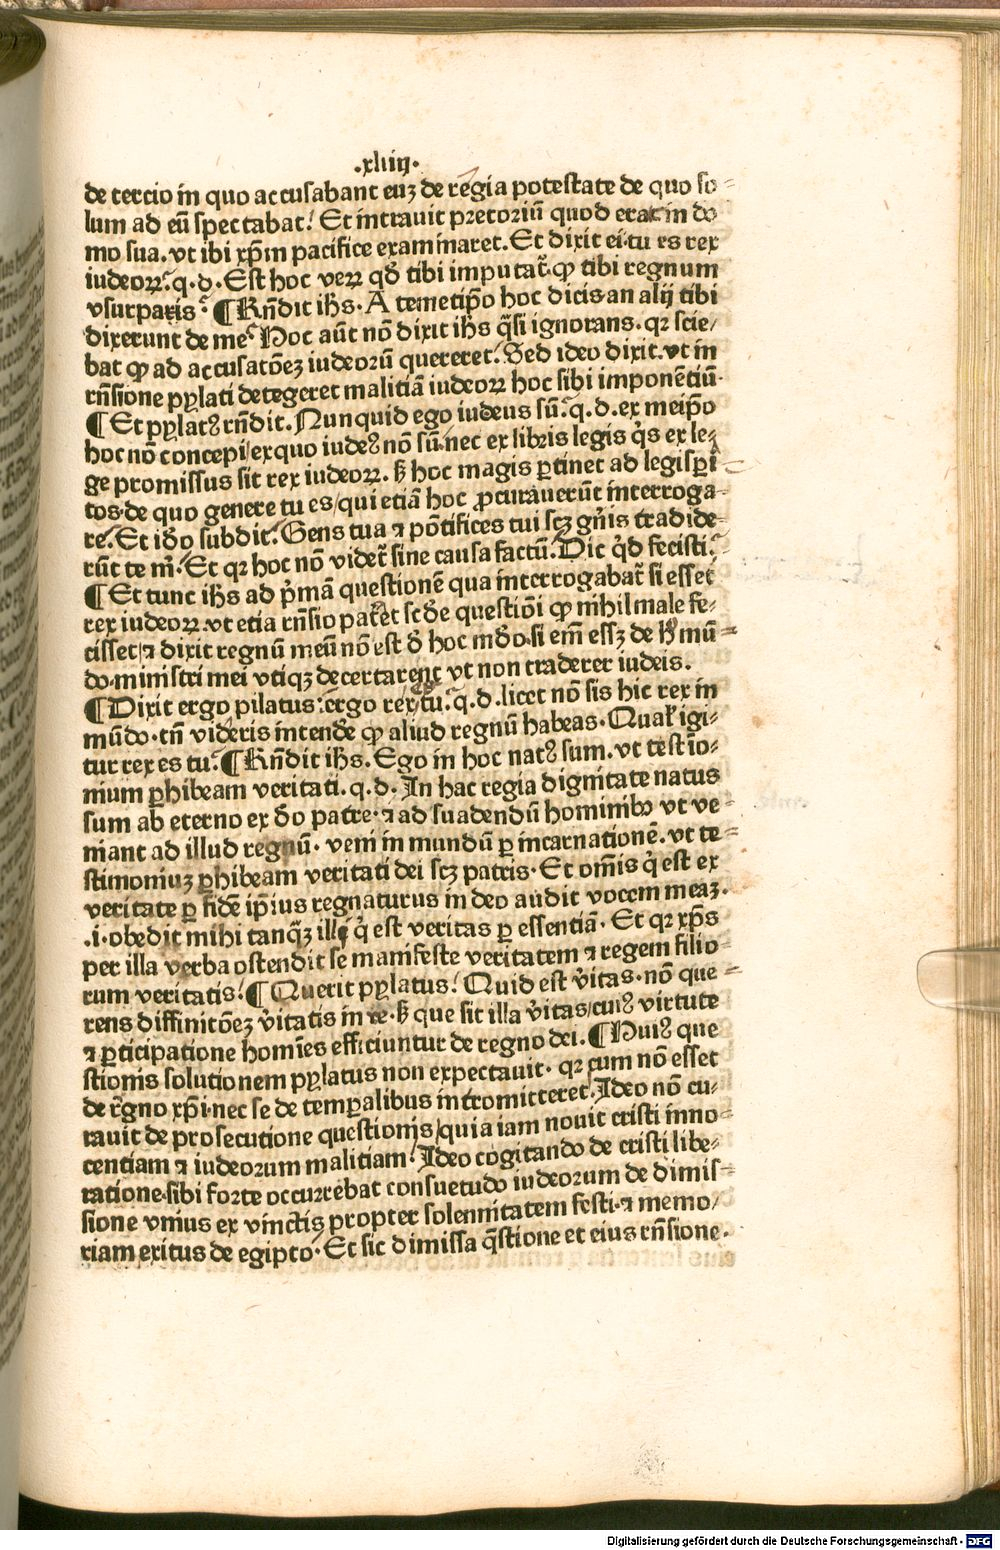 .xliiij.
de tercio in quo accusabant euꝫ de regia potestate de quo so⸗
lum ad eū spectabat. Et intrauit pretoriū quod erat in do
mo sua. vt ibi xp̄m pacifice examinaret. Et dixit ei. tu es rex
iudeoꝝ. q. d. Est hoc veꝝ qd̓ tibi imputat̄. ꝙ tibi regnum
vsurparis. ¶ Rn̄dit ihs̄. A temetip̄o hoc dicis an alij tibi
dixerunt de me. Hoc aūt nō dixit ihs̄ q̄si ignorans. qꝛ scie/
bat ꝙ ad accusatōeꝫ iudeorū quereret. Sed ideo dixit. vt in
rn̄sione pylati detegeret malitiā iudeoꝝ hoc sibi imponētiū.
¶ Et pylatꝰ rn̄dit. Nunquid ego iudeus sū. q. d. ex meip̄o
hoc nō concepi/ exquo iudeꝰ nō sū. nec ex libris legis q̇s ex le⸗
ge promissus sit rex iudeoꝝ. ß hoc magis ꝑtinet ad legisꝑi
tos. de quo genere tu es/ qui etiā hoc ꝓcurauerūt interroga⸗
re. Et id̓o subdit. Gens tua ⁊ pōtifices tui scꝫ gn̄is tradide⸗
rūt te m̄. Et qꝛ hoc nō videt̄ sine causa factū. Dic q̇d fecisti.
¶ Et tunc ihs̄ ad p̓mā questionē qua interrogabat̄ si esset
rex iudeoꝝ. vt etia rn̄sio patet scd̓e questiōi ꝙ nihil male fe⸗
cisset/ ⁊ dixit regnū meū nō est d̓ hoc md̓o. si em̄ essꝫ de hͦ mū⸗
do. ministri mei vtiqꝫ decertarent vt non traderer iudeis.
¶ Dixit ergo pilatus. ergo rex tu. q. d. licet nō sis hic rex in
mūdo. tn̄ videris intende̓ ꝙ aliud regnū habeas. Qualꝭ igi⸗
tur rex es tu. ¶ Rn̄dit ihs̄. Ego in hoc natꝰ sum. vt testīo⸗
nium ꝑhibeam veritati. q. d. In hac regia dignitate natus
sum ab eterno ex d̓o patre. ⁊ ad suadendū hominibꝰ vt ve⸗
niant ad illud regnū. veni in mundū ꝑ incarnationē. vt te⸗
stimoniuꝫ ꝑhibeam veritati dei scꝫ patris. Et om̄is q̇ est ex
veritate ꝑ fidē ip̄ius regnaturus in deo audit vocem meaꝫ.
.i. obedit mihi tanq̄ꝫ illi q̇ est veritas ꝑ essentiā. Et qꝛ xp̄s
per illa verba ostendit se manifeste veritatem ⁊ regem filio⸗
rum veritatis. ¶ Querit pylatus. Quid est v̓itas. nō que⸗
rens diffinitōeꝫ v̓itatis in re. ß que sit illa v̓itas/ cuiꝰ virtute
⁊ ꝑticipatione homīes efficiuntur de regno dei. ¶ Huiꝰ que
stionis solutionem pylatus non expectauit. qꝛ cum nō esset
de r̄gno xp̄i. nec se de temꝑalibus intromitteret. Ideo nō cu⸗
rauit de prosecutione questionis/ quia iam nouit cristi inno⸗
centiam ⁊ iudeorum malitiam. Ideo cogitando de cristi libe⸗
ratione. sibi forte occurrebat consuetudo iudeorum de dimis⸗
sione vnius ex vinctis propter solennitatem festi. ⁊ memo/
riam exitus de egipto. Et sic dimissa q̄stione et eius rn̄sione.
Digitalisierung gefördert durch die Deutsche Forschungsgemeinschaft - DFG